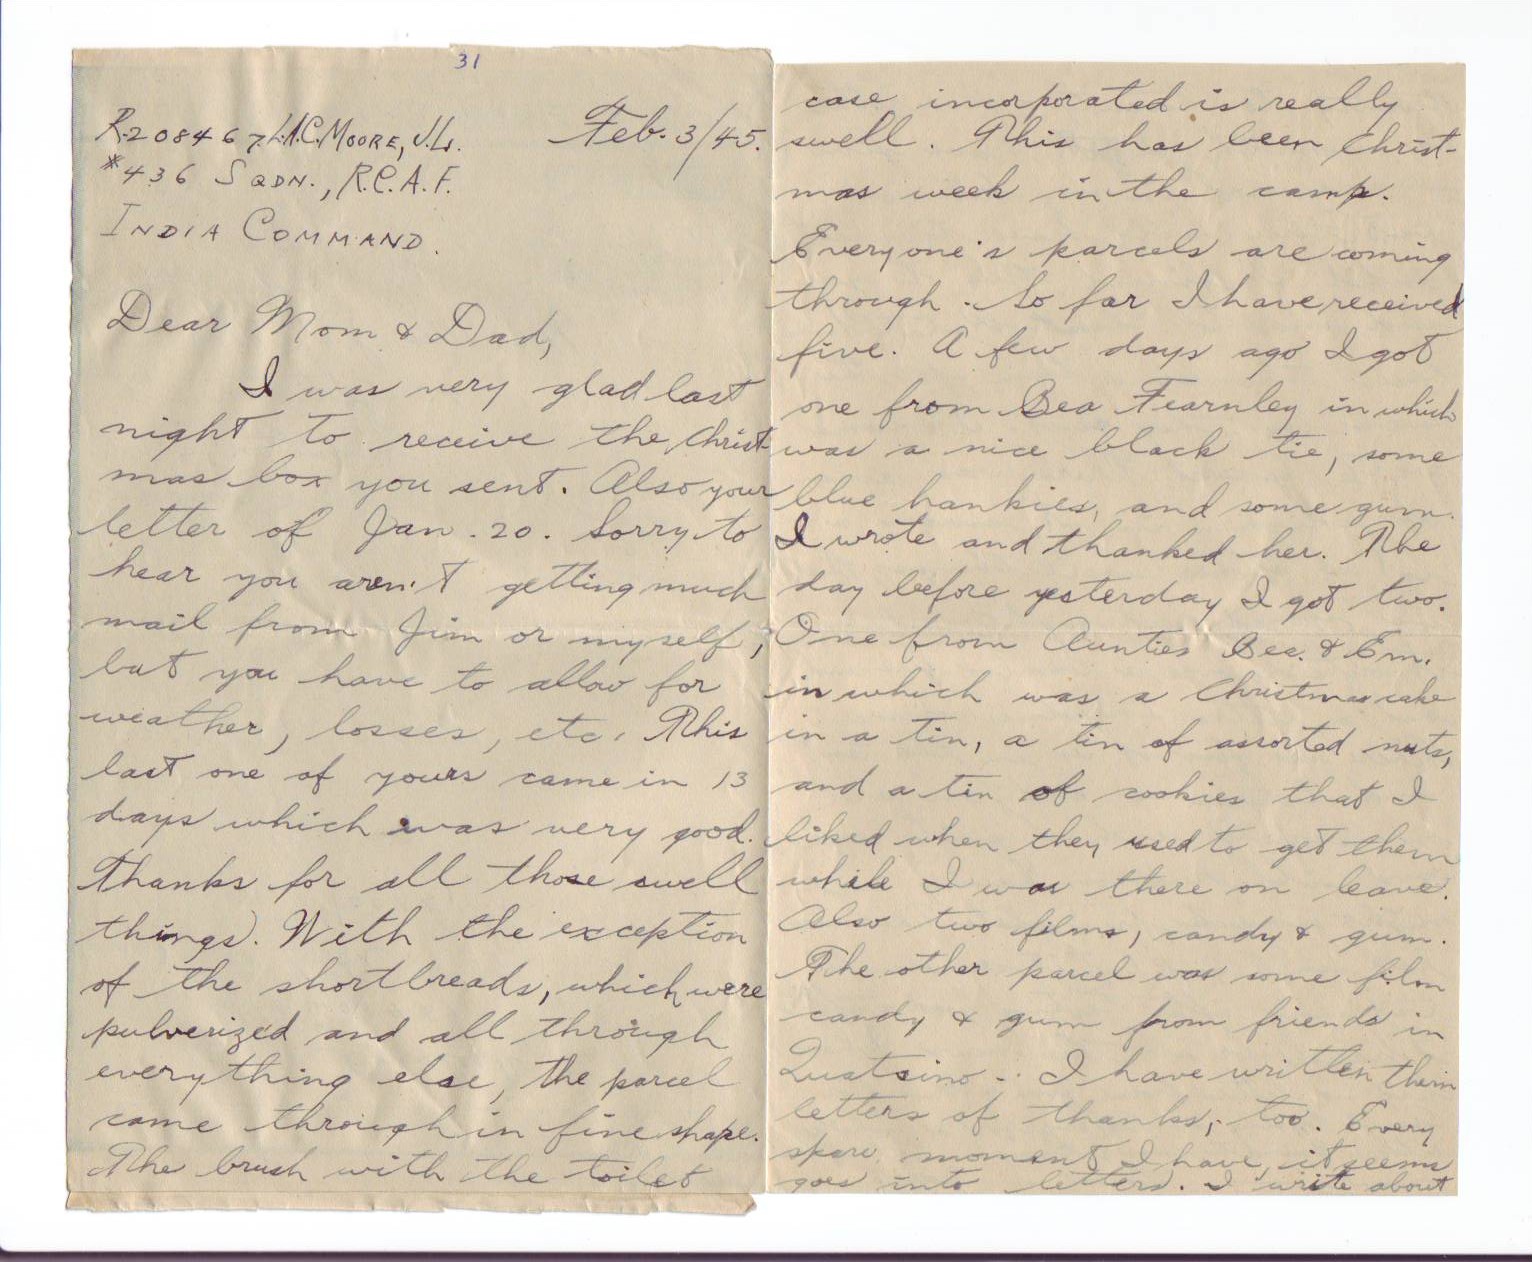 31
R-208467 L.A.C. MOORE, J.L. Feb. 3/45.
*436 SQDN., R.C.A.F.
INDIA COMMAND.
Dear Mom & Dad,
I was very glad last
night to receive the Christ-
mas box you sent. Also your
letter of Jan. 20. Sorry to
hear you aren't getting much
mail from Jim or myself,
but you have to allow for
weather, losses, etc. This
last one of yours came in 13
days which was very good.
Thanks for all those swell
things. With the exception
of the shortbreads, which were
pulverized and all through
everything else, the parcel
came through in fine shape.
The brush with the toilet
case incorporated is really
swell. This has been Christ-
mas week in the camp.
Everyone's parcels are coming
through. So far I have received
five. A few days ago I got
one from Bea Fearnley in which
was a nice black tie, some
blue hankies, and some gum.
I wrote and thanked her. The
day before yesterday I got two.
One from Aunties Bee. & Em.
in which was a Christmas cake
in a tin, a tin of assorted nuts,
and a tin of cookies that I
liked when they used to get them
while I was there on leave.
Also two films, candy & gum.
The other parcel was some film
candy & gum from friends in
Quatsino. I have written them
letters of thanks, too. Every
spare moment I have, it seems
goes into letters. I write about